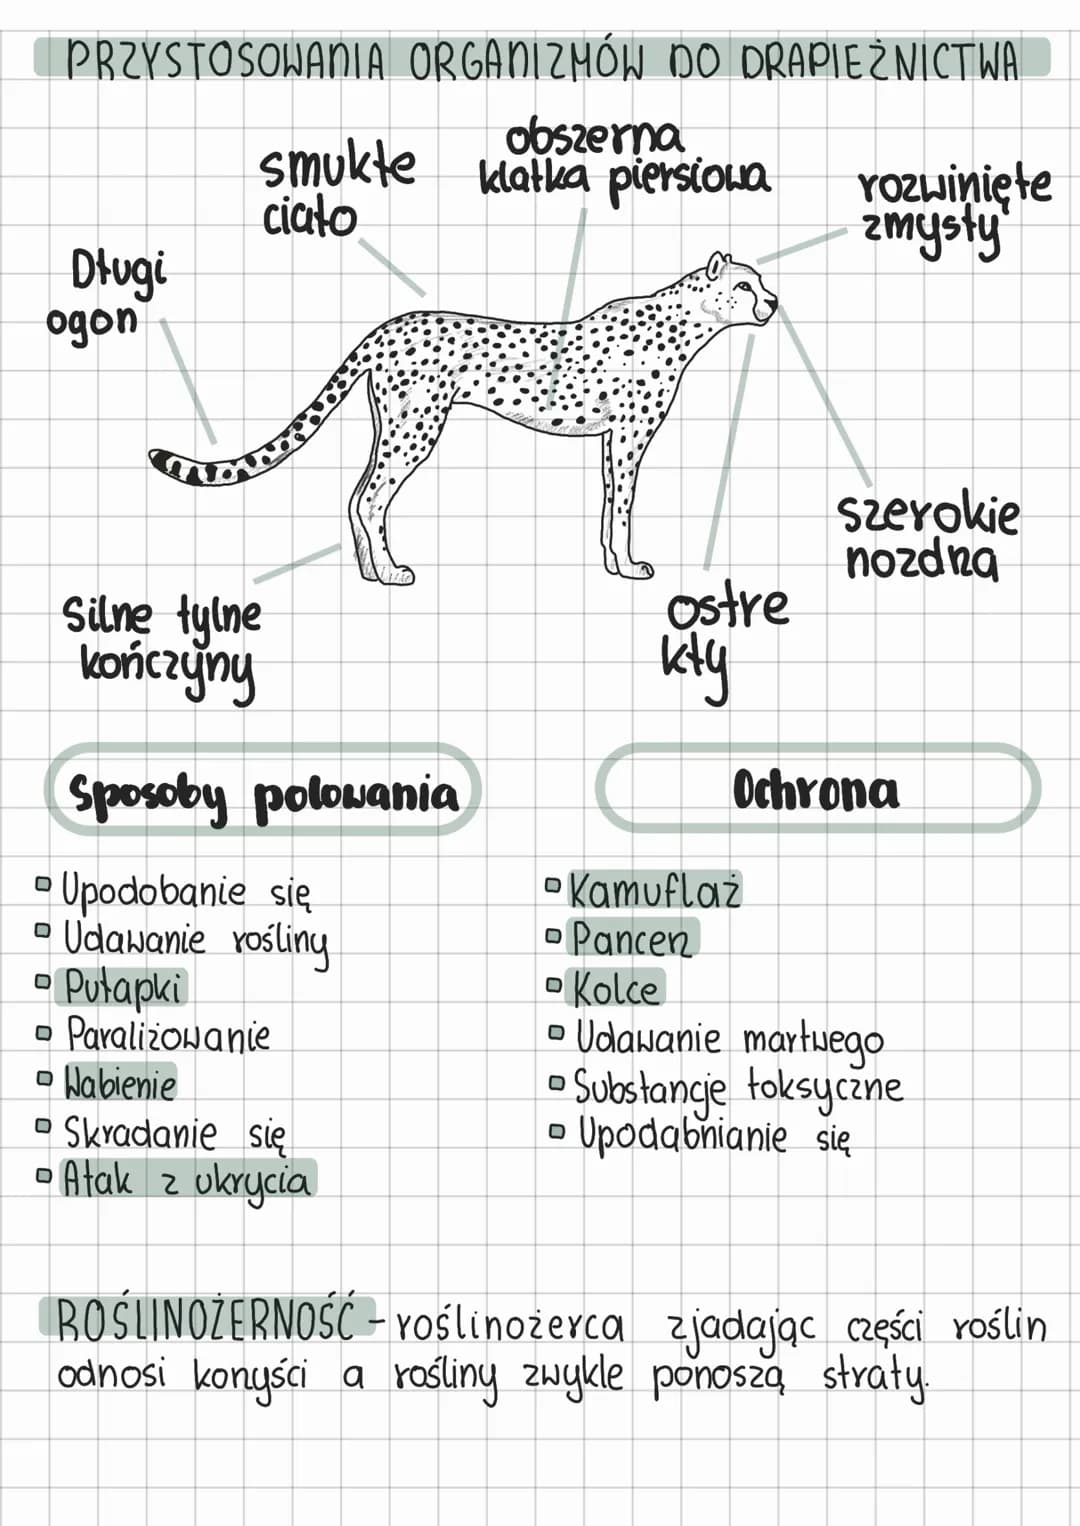 PRZYSTOSOWANIA ORGANIZMÓW DO DRAPIEŻNICTWA
obszerna
klatka piersiowa
smukłe
ciało
rozwinięte
zmysły
Długi
ogon
szerokie
nozdrza
Silne tylne
kończyny
ostre
kły
Sposoby polowania
Upodobanie się
Udawanie rośliny
Pułapki
Paraliżowanie
Wabienie
Skradanie się
Atak z ukrycia
Ochrona
Kamuflaż
Pancerz
Kolce
Udawanie martwego
Substancje toksyczne
Upodabnianie się
ROŚLINOŻERNOŚĆ - roślinożerca zjadając części roślin
odnosi korzyści a rośliny zwykle ponoszą straty.